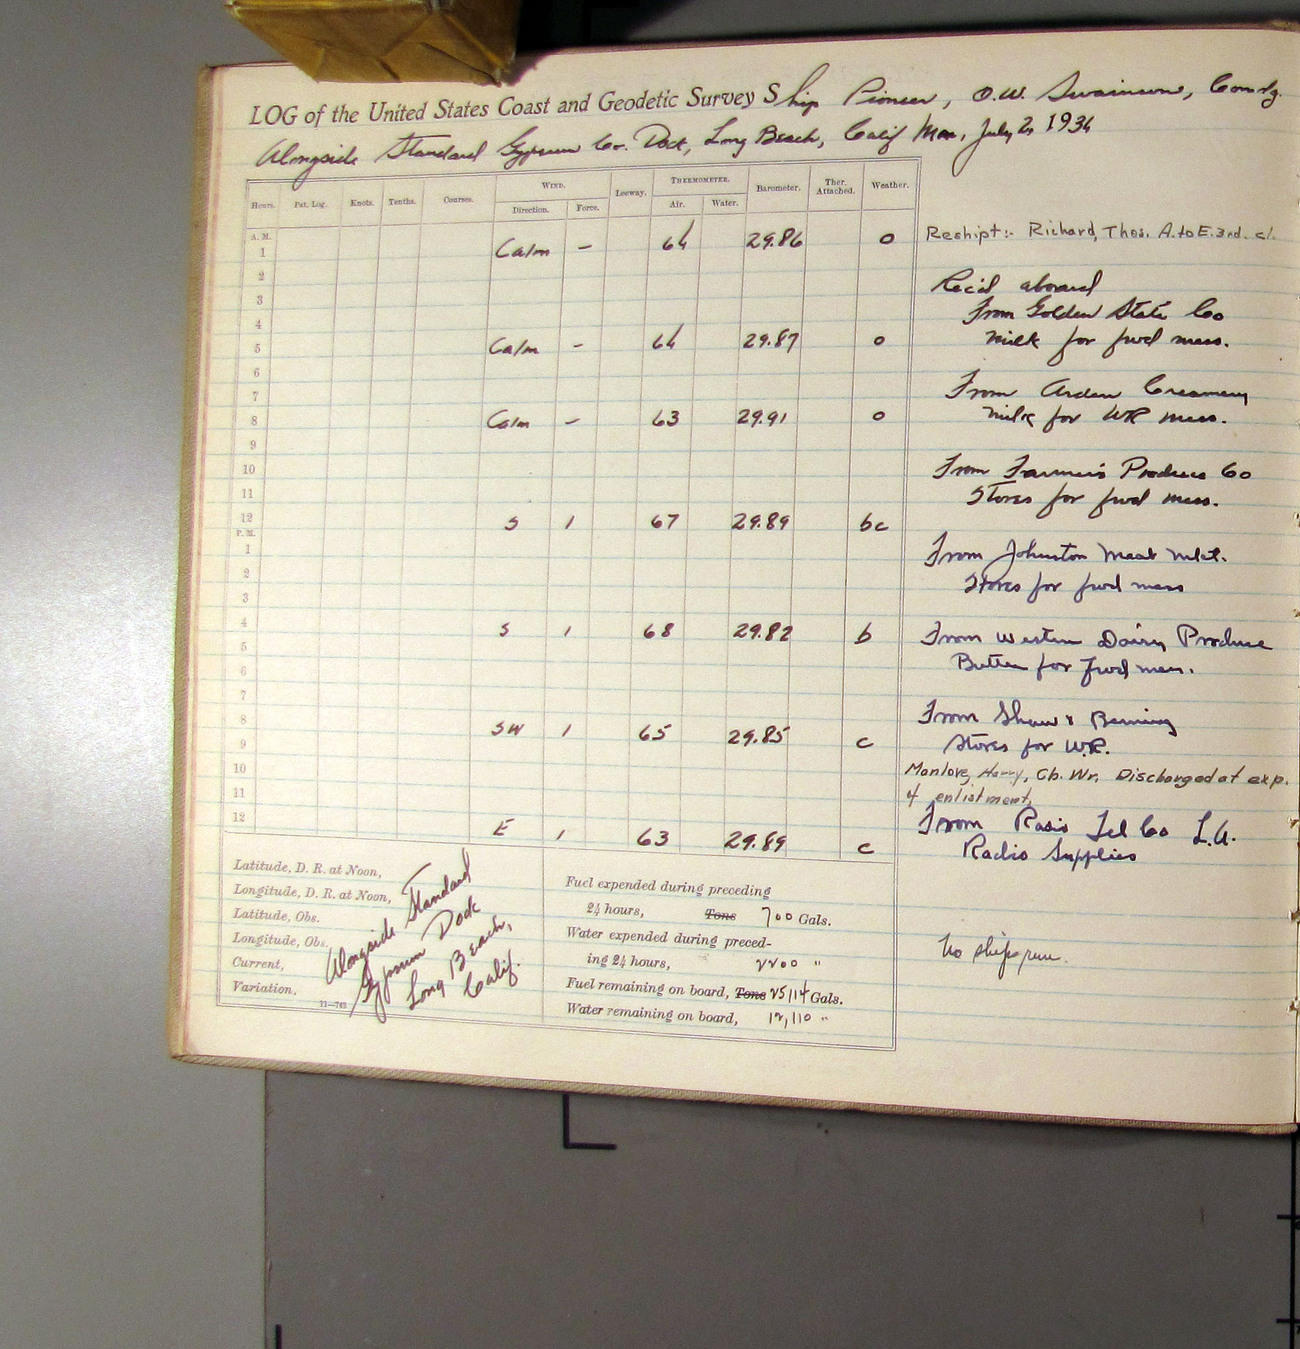 LOG of the United States Coast and Geodetic Survey Ship Pioneer, O.W. Swainson, Comdg.
Alongside Standard Gypsum Co. Dock, Long Beach, Calif Mon, July 2, 1934
Hours. Pat. Log. Knots. Tenths. Courses. WIND. Leeway. THERMOMETER. Barometer. Ther. Attached. Weather.
Direction. Force. Air. Water.
A. M.
1 Calm – 64 29.86 o
2
3
4
5 Calm – 64 29.87 o
6
7
8 Calm – 63 29.91 o
9
10
11
12 S 1 67 29.89 bc
P. M.
1
2
3
4 S 1 68 29.82 b
5
6
7
8 SW 1 65 29.85 c
9
10
11
12 E 1 63 29.89 c
Reshipt:- Richard, Thos. A. to E. 3rd. cl.
Rec'd aboard
From Golden State Co
milk for fwd mess.
From Arden Creamery
milk for WR mess.
From Farmer's Produce Co
Stores for fwd mess.
From Johnston Meat Mkt.
Stores for fwd mess
From Western Dairy Produce
Butter for fwd mess.
From Shaw & Berning
Stores for W.R.
Manlove, Harry, Ch. Wr. Discharged at exp.
of enlistment.
From Radio Tel Co L.A.
Radio Supplies
No ships pwr.
Latitude, D. R. at Noon,
Longitude, D. R. at Noon,
Latitude, Obs.
Longitude, Obs.
Current,
Variation.
11—763
Alongside Standard
Gypsum Dock
Long Beach,
Calif.
Fuel expended during preceding
24 hours, Tons 700 Gals.
Water expended during preced-
ing 24 hours, 2200 "
Fuel remaining on board, Tons 25,114 Gals.
Water remaining on board, 12,110 "